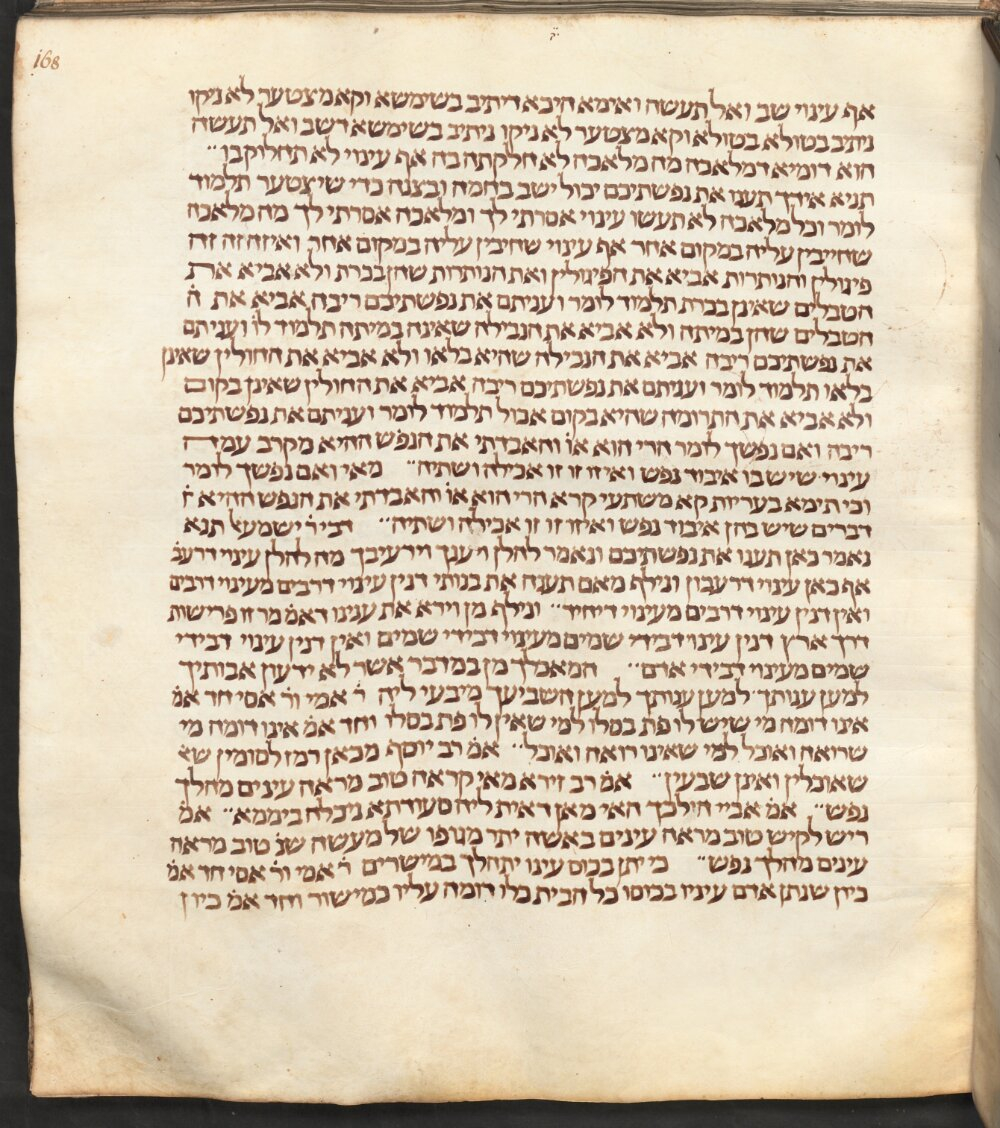 168
אף עינוי שב ואל תעשה ואימא היכא דיתיב בשימשא וקא מצטער לא ניקו
ניתיב בטולא בטולא וקא מצטער לא ניקו ניתיב בשימשא דשב ואל תעשה
הוא דומיא דמלאכה מה מלאכה לא חלקתה בה אף עינוי לא תחלוק בו
תניא אידך תענו את נפשתיכם יכול ישב בחמה ובצנה כדי שיצטער תלמוד
לומר וכל מלאכה לא תעשו עינוי אסרתי לך ומלאכה אסרתי לך מה מלאכה
שחייבין עליה במקום אחר אף עינוי שחייבין עליה במקום אחר ואיזה זה זה
פיגולין והנותרות אביא את הפיגולין ואת הנותרות שהן בכרת ולא אביא את
הטבלים שאינן בכרת תלמוד לומר ועניתם את נפשתיכם ריבה אביא את ה
הטבלים שהן במיתה ולא אביא את הנבילה שאינה במיתה תלמוד לו ועניתם
את נפשתיכם ריבה אביא את הנבילה שהיא בלאו ולא אביא את החולין שאינן
בלאו תלמוד לומר ועניתם את נפשתיכם ריבה אביא את החולין שאינן בקום
ולא אביא את התרומה שהיא בקום אכול תלמוד לומר ועניתם את נפשתיכם
ריבה ואם נפשך לומר הרי הוא או והאבדתי את הנפש ההיא מקרב עמה
עינוי שיש בו איבוד נפש ואיזו זו זו אכילה ושתיה מאי ואם נפשך לומר
וכי תימא בעריות קא משתעי קרא הרי הוא או והאבדתי את הנפש ההיא ד
דברים שיש בהן איבוד נפש ואיזו זו זו אכילה ושתיה דבי ר ישמעאל תנא
נאמר כאן תענו את נפשתיכם ונאמר להלן ויענך וירעיבך מה להלן עינוי דרעב
אף כאן עינוי דרעבון ונילף מאם תענה את בנותי דנין עינוי דרבים מעינוי דרבים
ואין דנין עינוי דרבים מעינוי דיחיד ונילף מן וירא את ענינו דאמ מר זו פרישות
דרך ארץ דנין עינוי דבידי שמים מעינוי דבידי שמים ואין דנין עינוי דבידי
שמים מעינוי דבידי אדם המאכלך מן במדבר אשר לא ידעון אבותיך
למען ענותך למען ענותך למען השביעך מיבעי ליה ר אמי ור אסי חד אמ
אינו דומה מי שיש לו פת בסלו למי שאין לו פת בסלו וחד אמ אינו דומה מי
שרואה ואוכל למי שאינו רואה ואוכל אמ רב יוסף מכאן רמז לסומין שא
שאוכלין ואינן שבעין אמ רב זירא מאי קראה טוב מראה עינים מהלך
נפש אמ אביי הילכך האי מאן דאית ליה סעודתא ניכלה ביממא אמ
ריש לקיש טוב מראה עינים באשה יתר מגופו של מעשה שנ טוב מראה
עינים מהלך נפש כי יתן בכוס עינו יתהלך במישרים ר אמי ור אסי חד אמ
כיון שנתן אדם עיניו בכוסו כל הבית כלו דומה עליו כמישור וחד אמ כיון